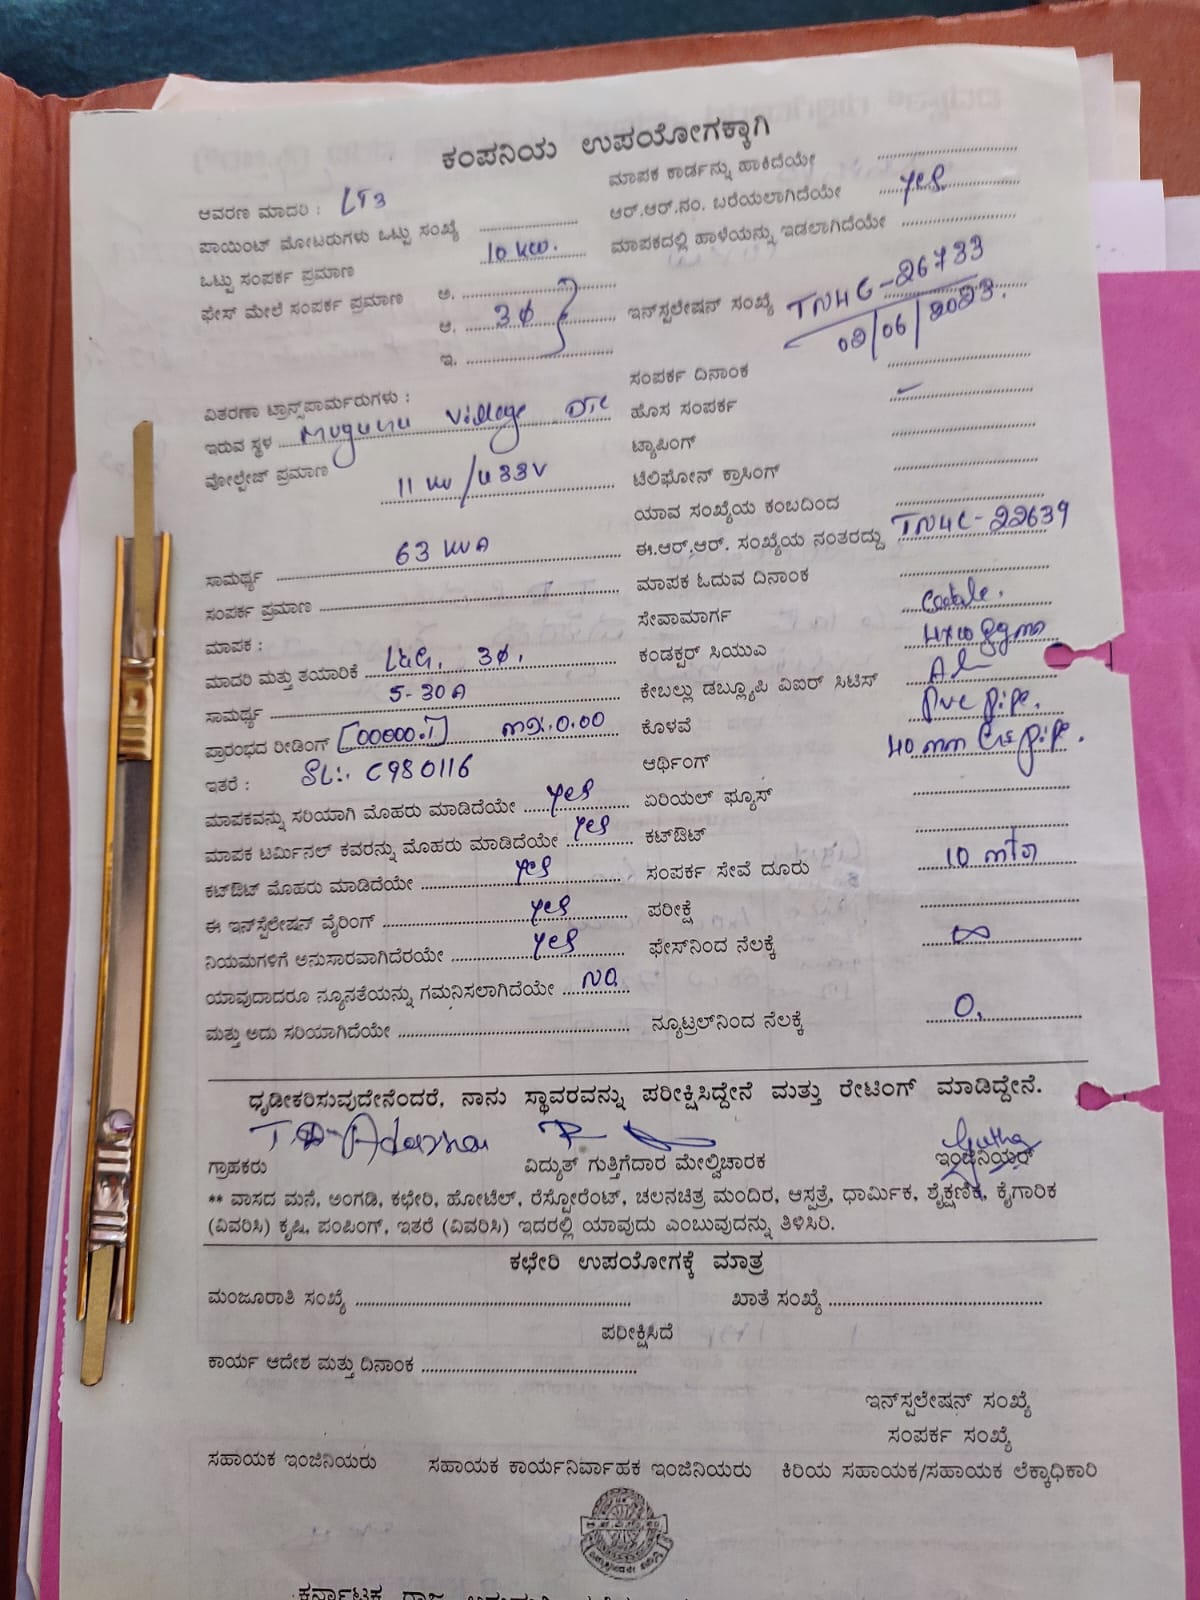 ಕಂಪನಿಯ ಉಪಯೋಗಕ್ಕಾಗಿ
ಆವರಣ ಮಾದರಿ : LT3
ಪಾಯಿಂಟ್ ಮೋಟರುಗಳು ಒಟ್ಟು ಸಂಖ್ಯೆ
ಒಟ್ಟು ಸಂಪರ್ಕ ಪ್ರಮಾಣ 10 KW.
ಫೇಸ್ ಮೇಲೆ ಸಂಪರ್ಕ ಪ್ರಮಾಣ ಅ.
ಆ. 3ϕ
ಇ.
ವಿತರಣಾ ಟ್ರಾನ್ಸ್‌ಪಾರ್ಮರುಗಳು :
ಇರುವ ಸ್ಥಳ Mugunu Village DTC
ವೋಲ್ಟೇಜ್ ಪ್ರಮಾಣ 11 KV/433V
ಸಾಮರ್ಥ್ಯ 63 KVA
ಸಂಪರ್ಕ ಪ್ರಮಾಣ
ಮಾಪಕ :
ಮಾದರಿ ಮತ್ತು ತಯಾರಿಕೆ L&G, 3ϕ,
ಸಾಮರ್ಥ್ಯ 5-30A
ಪ್ರಾರಂಭದ ರೀಡಿಂಗ್ 0.00
ಇತರೆ : SL:. C980116
ಮಾಪಕವನ್ನು ಸರಿಯಾಗಿ ಮೊಹರು ಮಾಡಿದೆಯೇ yes
ಮಾಪಕ ಟರ್ಮಿನಲ್ ಕವರನ್ನು ಮೊಹರು ಮಾಡಿದೆಯೇ yes
ಕಟ್‌ಔಟ್ ಮೊಹರು ಮಾಡಿದೆಯೇ yes
ಈ ಇನ್‌ಸ್ಟೆಲೇಷನ್ ವೈರಿಂಗ್ yes
ನಿಯಮಗಳಿಗೆ ಅನುಸಾರವಾಗಿದೆರಯೇ yes
ಯಾವುದಾದರೂ ನ್ಯೂನತೆಯನ್ನು ಗಮನಿಸಲಾಗಿದೆಯೇ NO
ಮತ್ತು ಅದು ಸರಿಯಾಗಿದೆಯೇ
ಮಾಪಕ ಕಾರ್ಡನ್ನು ಹಾಕಿದೆಯೇ
ಆರ್.ಆರ್.ನಂ. ಬರೆಯಲಾಗಿದೆಯೇ yes.
ಮಾಪಕದಲ್ಲಿ ಹಾಳೆಯನ್ನು ಇಡಲಾಗಿದೆಯೇ
ಇನ್‌ಸ್ಪಲೇಷನ್ ಸಂಖ್ಯೆ TN4C-26733
02/06/2023.
ಸಂಪರ್ಕ ದಿನಾಂಕ
ಹೊಸ ಸಂಪರ್ಕ
ಟ್ಯಾಪಿಂಗ್
ಟೆಲಿಫೋನ್ ಕ್ರಾಸಿಂಗ್
ಯಾವ ಸಂಖ್ಯೆಯ ಕಂಬದಿಂದ
ಈ.ಆರ್.ಆರ್. ಸಂಖ್ಯೆಯ ನಂತರದ್ದು TN4C-22639
ಮಾಪಕ ಓದುವ ದಿನಾಂಕ
ಸೇವಾಮಾರ್ಗ
ಕಂಡಕ್ಟರ್ ಸಿಯುಎ
ಕೇಬಲ್ಲು ಡಬ್ಲ್ಯೂಪಿ ವಿಐರ್ ಸಿಟಿಸ್ Al
ಕೊಳವೆ PVC Pipe.
ಆರ್ಥಿಂಗ್ 40 mm pipe.
ಏರಿಯಲ್ ಫ್ಯೂಸ್
ಕಟ್‌ಔಟ್
ಸಂಪರ್ಕ ಸೇವೆ ದೂರು 10 mts
ಪರೀಕ್ಷೆ
ಫೇಸ್‌ನಿಂದ ನೆಲಕ್ಕೆ ∞
ನ್ಯೂಟ್ರಲ್‌ನಿಂದ ನೆಲಕ್ಕೆ 0.
ಧೃಡೀಕರಿಸುವುದೇನೆಂದರೆ, ನಾನು ಸ್ಥಾವರವನ್ನು ಪರೀಕ್ಷಿಸಿದ್ದೇನೆ ಮತ್ತು ರೇಟಿಂಗ್ ಮಾಡಿದ್ದೇನೆ.
ಗ್ರಾಹಕರು ವಿದ್ಯುತ್ ಗುತ್ತಿಗೆದಾರ ಮೇಲ್ವಿಚಾರಕ ಇಂಜಿನಿಯರ್
** ವಾಸದ ಮನೆ, ಅಂಗಡಿ, ಕಛೇರಿ, ಹೋಟೆಲ್, ರೆಸ್ಟೋರೆಂಟ್, ಚಲನಚಿತ್ರ ಮಂದಿರ, ಆಸ್ಪತ್ರೆ, ಧಾರ್ಮಿಕ, ಶೈಕ್ಷಣಿಕ, ಕೈಗಾರಿಕ
(ವಿವರಿಸಿ) ಕೃಷಿ, ಪಂಪಿಂಗ್, ಇತರೆ (ವಿವರಿಸಿ) ಇದರಲ್ಲಿ ಯಾವುದು ಎಂಬುವುದನ್ನು ತಿಳಿಸಿರಿ.
ಕಛೇರಿ ಉಪಯೋಗಕ್ಕೆ ಮಾತ್ರ
ಮಂಜೂರಾತಿ ಸಂಖ್ಯೆ ಖಾತೆ ಸಂಖ್ಯೆ
ಪರೀಕ್ಷಿಸಿದೆ
ಕಾರ್ಯ ಆದೇಶ ಮತ್ತು ದಿನಾಂಕ
ಇನ್‌ಸ್ಪಲೇಷನ್ ಸಂಖ್ಯೆ
ಸಂಪರ್ಕ ಸಂಖ್ಯೆ
ಸಹಾಯಕ ಇಂಜಿನಿಯರು ಸಹಾಯಕ ಕಾರ್ಯನಿರ್ವಾಹಕ ಇಂಜಿನಿಯರು ಕಿರಿಯ ಸಹಾಯಕ/ಸಹಾಯಕ ಲೆಕ್ಕಾಧಿಕಾರಿ